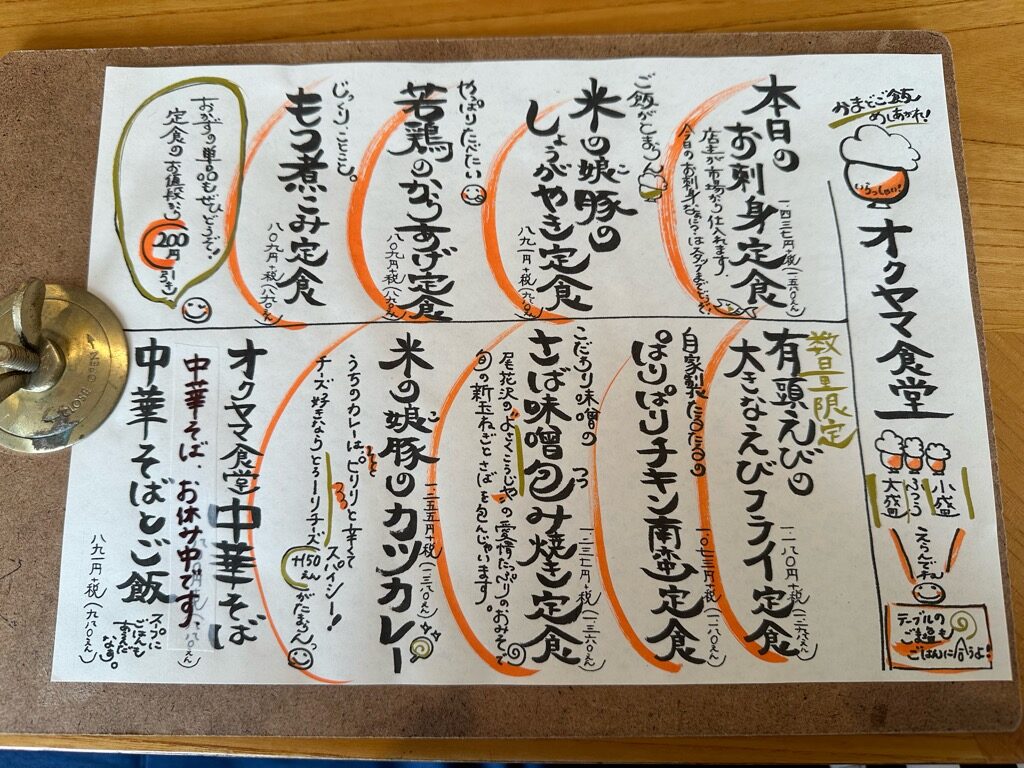 かまどご飯
めしあがれ!
いらっしゃい!
オクヤマ食堂
小盛
ふつう
大盛
えらんでネ
テーブルの
ごま塩も
ごはんに合うよ!
本日の
お刺身定食
一四三七円+税(一五八〇えん)
店主が市場から仕入れます
今日のお刺身なぁに?はスタッフまでどうぞ
ご飯がとまらん
米の娘豚の
しょうがやき定食
八九一円+税(九八〇えん)
やっぱりたべたい
若鶏のからあげ定食
八〇九円+税(八九〇えん)
じっくりことこと。
もつ煮こみ定食
八〇九円+税(八九〇えん)
おかずの単品もぜひどうぞ!
定食のお値段から
200円引き
数量限定
有頭えびの
大きなえびフライ定食
自家製たるたるの
ぱりぱりチキン南蛮定食
一〇七三円+税(一一八〇えん)
こだわり味噌の
さば味噌包み焼き定食
つつ
一二三七円+税(一三六〇えん)
尾花沢の"よさくこうじや"の愛情たっぷりのおみそで
旬の新玉ねぎとさばを包んじゃいます。
米の娘豚のカツカレー
一二五五円+税(一三八〇えん)
うちのカレーは。ピリリと辛くて
スパイシー!
チーズ好きならとろーりチーズ
+150えん
がたまらんっ
オクヤマ食堂中華そば
中華そば、お休み中です。
中華そばとご飯
スープに
ごはんも
あうんだ
なす。
八九一円+税(九八〇えん)